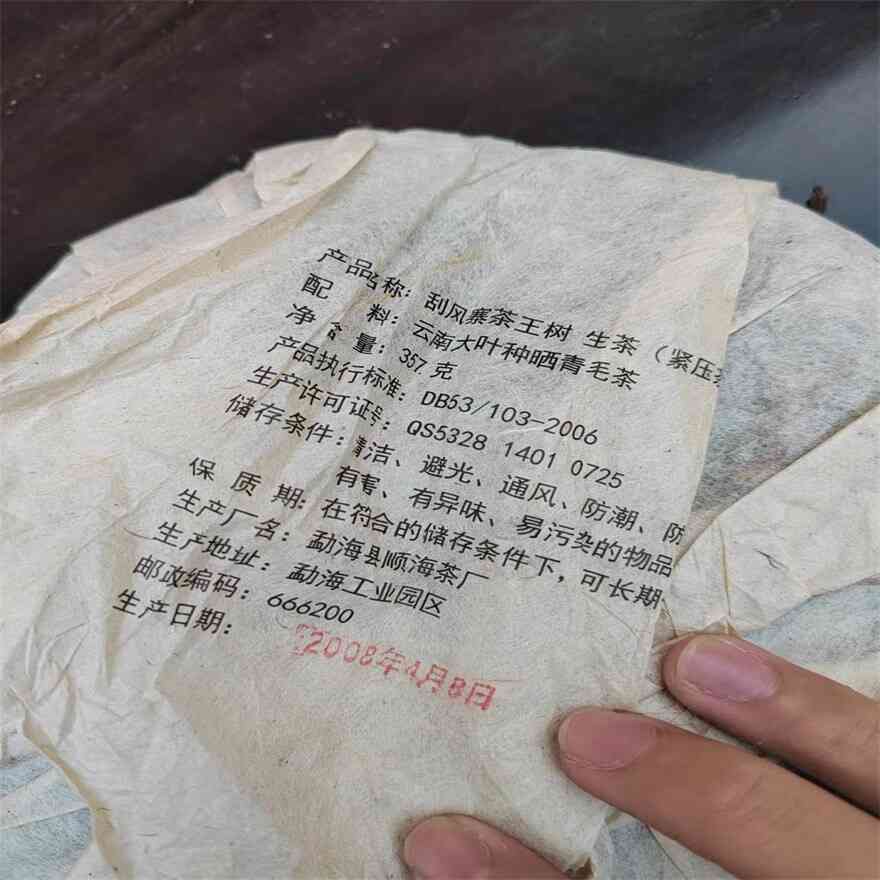 产品名称：刮风寨茶王树 生茶（紧压茶
配 料：云南大叶种晒青毛茶
净含量：357克
产品执行标准：DB53/103-2006
生产许可证号：QS5328 1401 0725
储存条件：清洁、避光、通风、防潮、防
有害、有异味、易污染的物品
保质期：在符合的储存条件下，可长期
生产厂名：勐海县顺海茶厂
生产地址：勐海工业园区
邮政编码：666200
生产日期：2008年4月8日